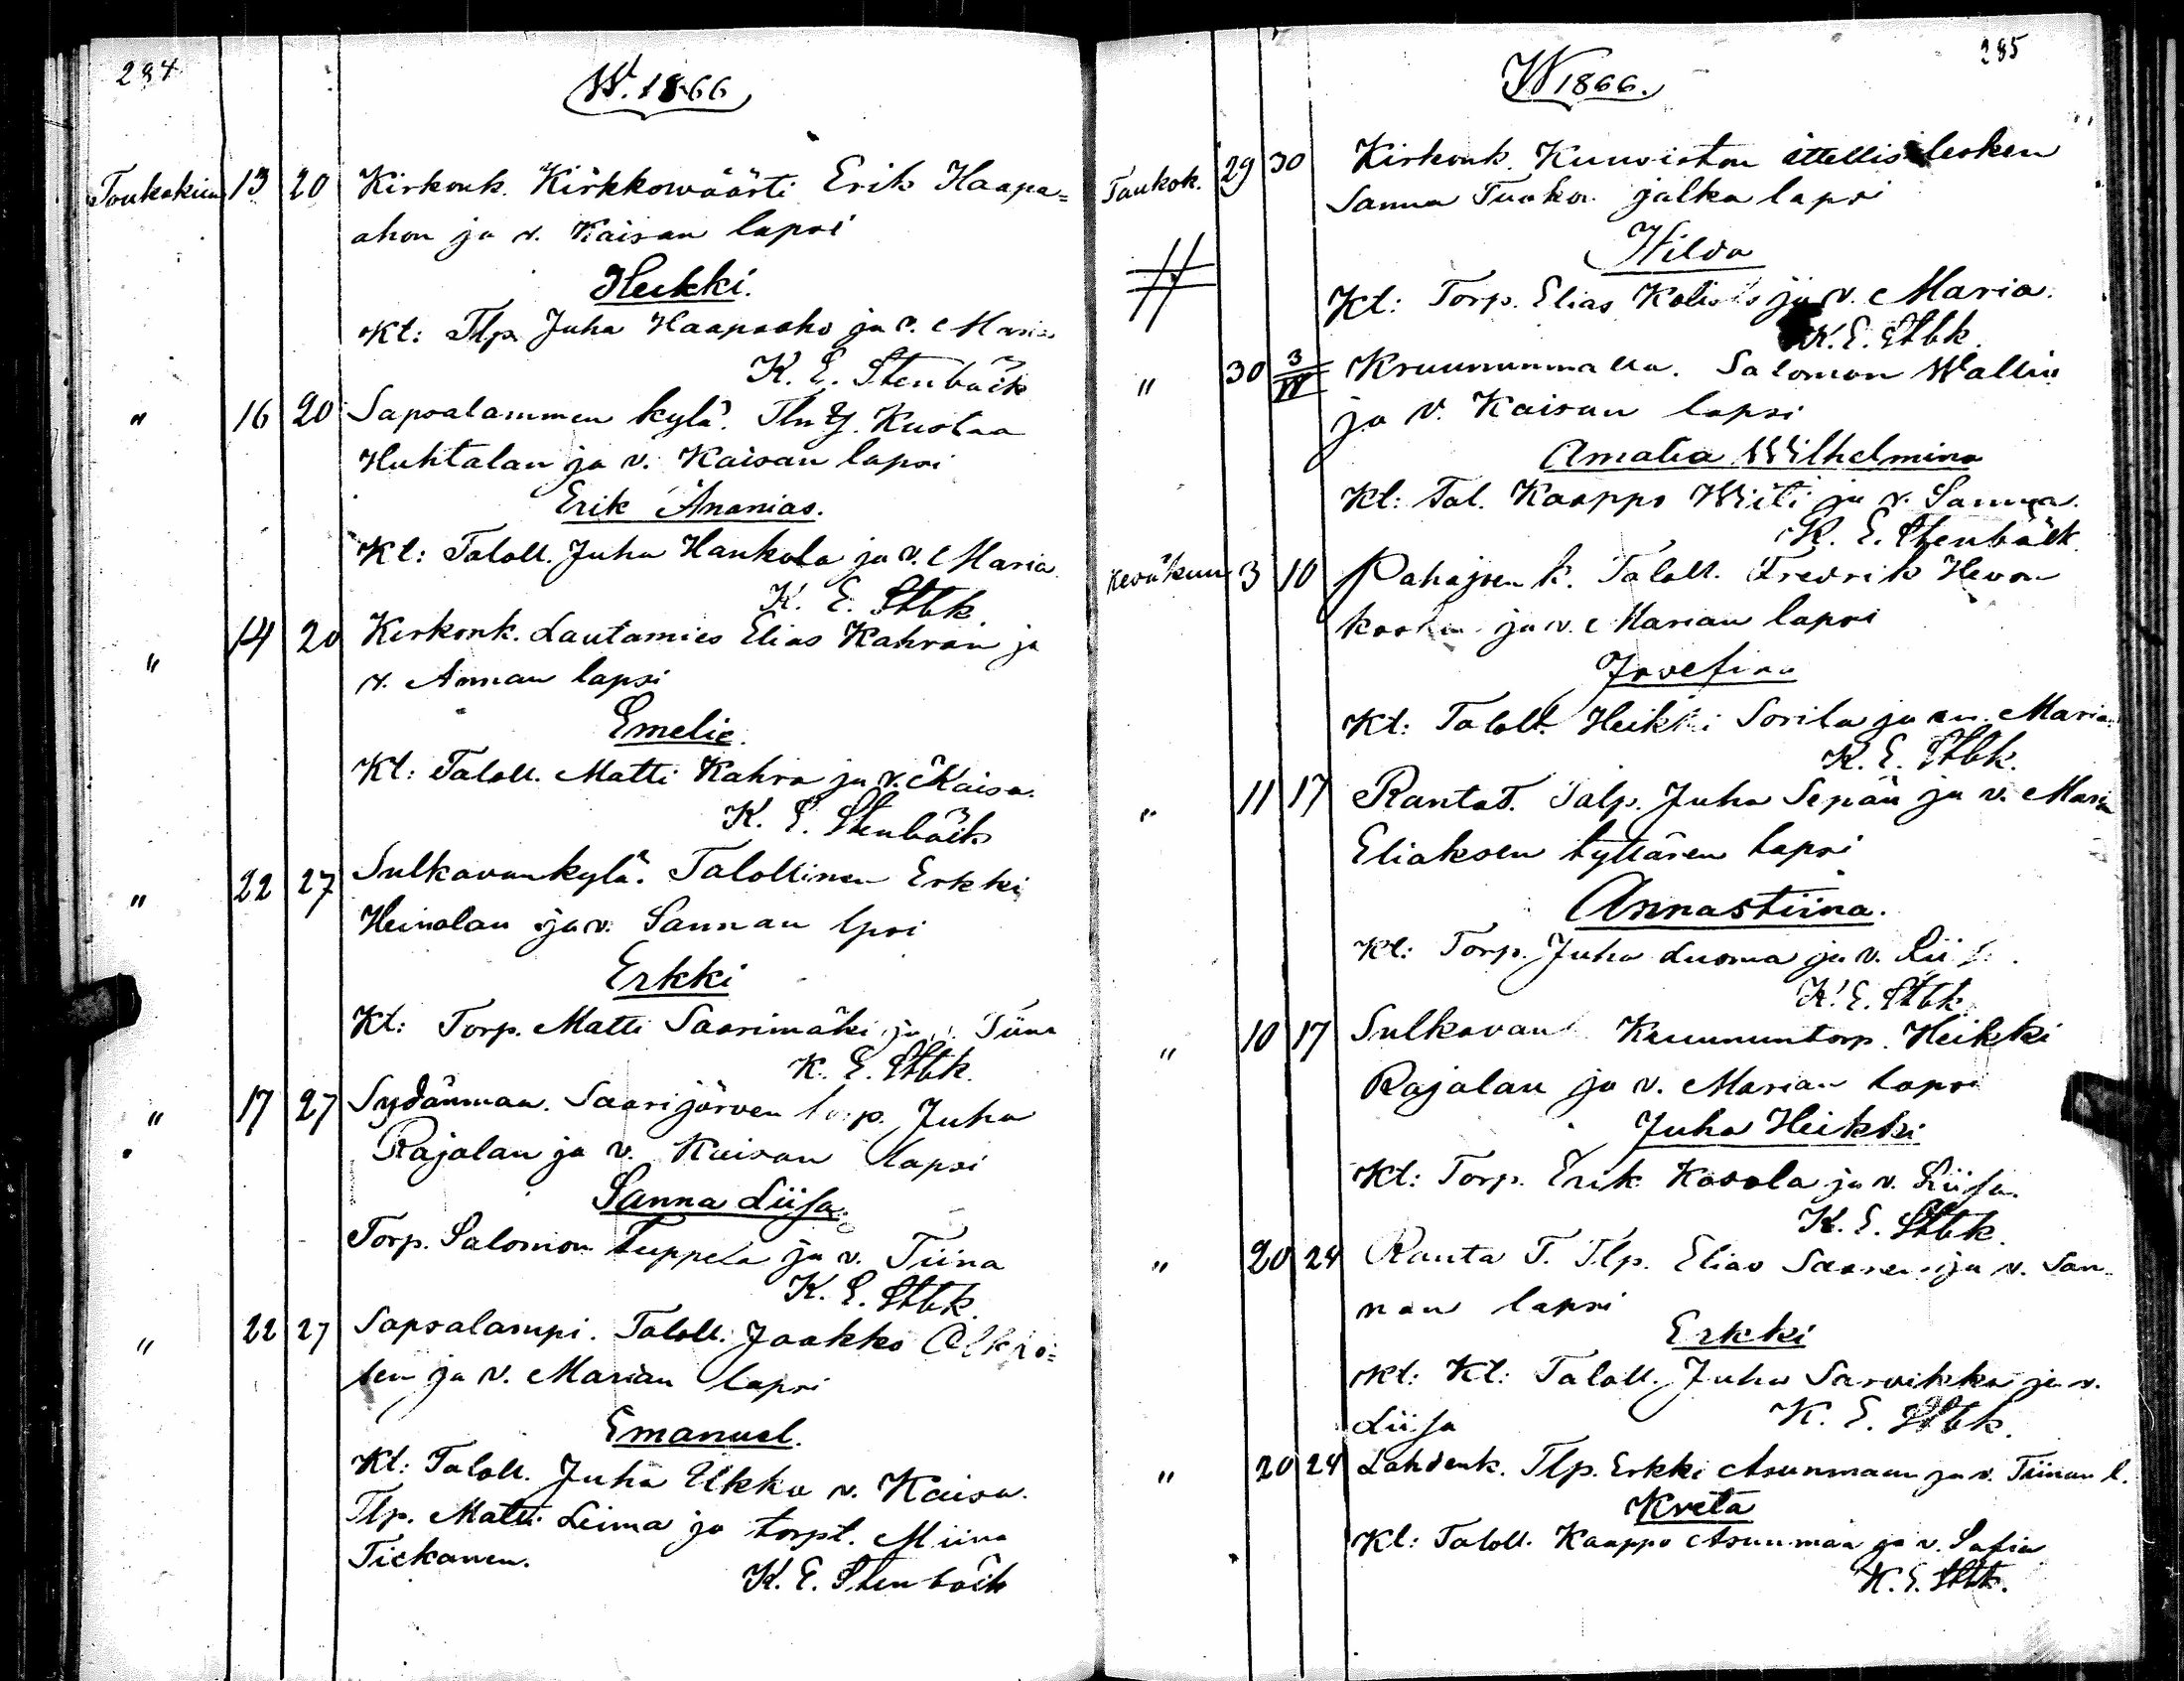 284
W. 1866
Toukokuu 13 20 Kirkonk. Kirkkowäärti Erik Haapa=
ahon ja v. Kaisan lapsi
Heikki.
Kt: Tlp. Juha Haapaaho ja v. Maria
K. E. Stenbäck
" 16 20 Sapsalammen kylä. Kustaa
Huhtalan ja v. Kaisan lapsi
Erik Ananias.
Kt: Taloll. Juha Hankola ja v. Maria
K. E. Stbk.
" 14 20 Kirkonk. Lautamies Elias Kahran ja
v. Annan lapsi
Emelie.
Kt: Taloll. Matti Kahra ja v. Kaisa.
K. E. Stenbäck
" 22 27 Sulkavankylä. Talollinen Erkki
Heinolan ja v. Sannan lpsi
Erkki
Kt: Torp. Matti Saarimäki ja Tiina
K. E. Stbk.
" 17 27 Sydänmaa. Saarijärven Juha
Rajalan ja v. Kaisan lapsi
Sanna Liisa.
Torp. Salomon Tuppela ja v. Tiina
K. E. Stbk.
" 22 27 Sapsalampi. Taloll. Jaakko
sen ja v. Marian lapsi
Emanuel.
Kt: Taloll. Juha Ukko v. Kaisa.
Tlp. Matti Leima ja torpt. Miina
Tickanen.
K. E. Stenbäck
285
W 1866.
Toukok. 29 30 Kirkonk. Kuuviston ittellis lesken
Sanna jalka lapsi
Hilda
Kt: Torp. Elias ja v. Maria.
K. E. Stbk.
" 30 3/IV Kruununmaa. Salomon Wallin
ja v. Kaisan lapsi
Amalia Wilhelmina
Kt: Tal. Kaappo Wiiti ja v. Sanna.
K. E. Stenbäck.
Kesäkuu 3 10 Pahajoen k. Taloll. Fredrik Hevon
kosken ja v. Marian lapsi
Josefina
Kt: Taloll. Heikki Sorila ja em. Maria.
K. E. Stbk.
" 11 17 Ranta T. Talp. Juha Sepän ja v. Maria
Eliaksen tyttären lapsi
Annastiina.
Kt: Torp. Juha Luoma ja v.
K. E. Stbk.
" 10 17 Sulkavan Kruununtorp. Heikki
Rajalan ja v. Marian lapsi
Juha Heikki
Kt: Torp. Erik Kosola ja v. Liisa.
K. E. Stbk.
" 20 24 Ranta T. Tlp. Elias Saaren ja v. San=
nan lapsi
Erkki
Kt: Kt: Taloll. Juha Sarvikko ja v.
Liisa K. E. Stbk.
" 20 24 Lahdenk. Tlp. Erkki Asunmaan ja v. Tiinan l.
Kreta
Kt: Taloll. Kaappo Asunmaa ja v. Sofia
K. E. Stbk.